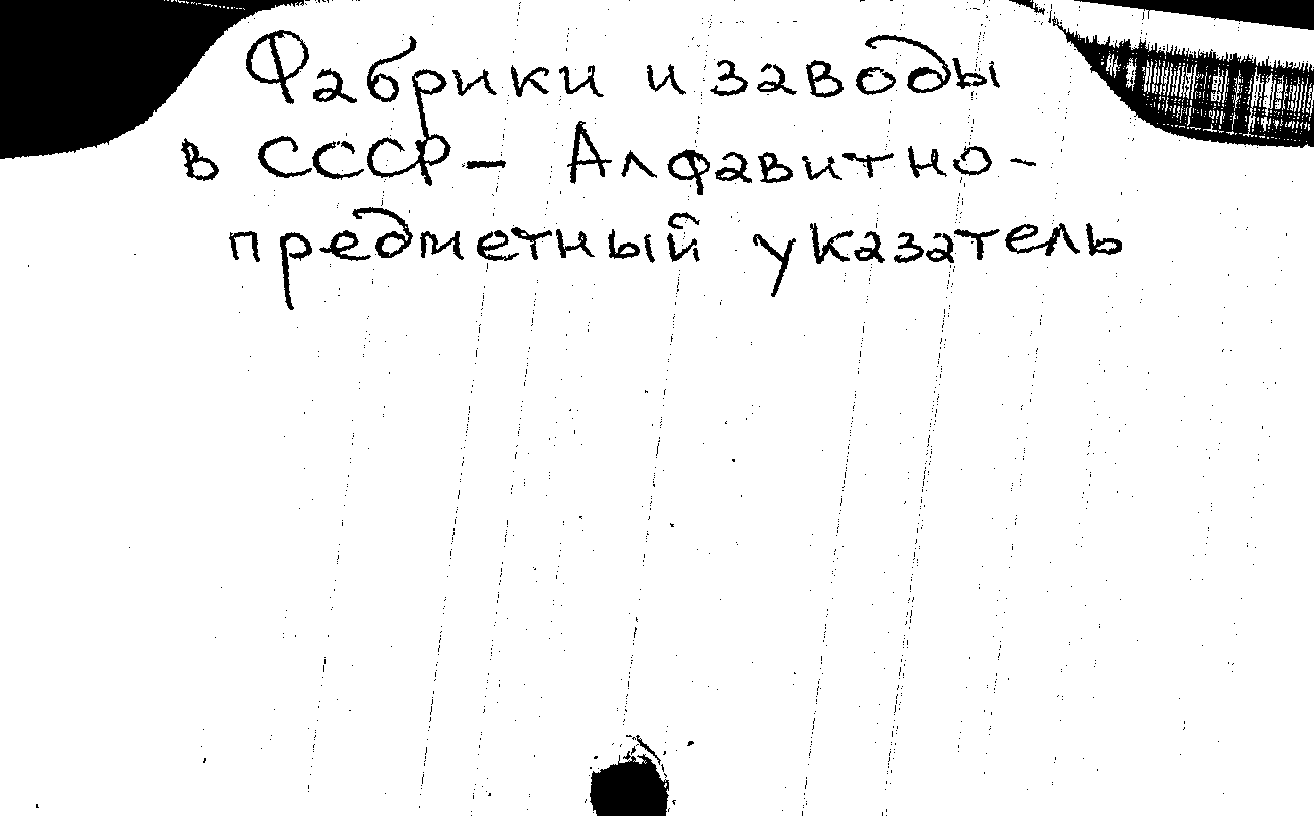 Фабрики и заводы
в СССР – Алфавитно-
предметный указатель